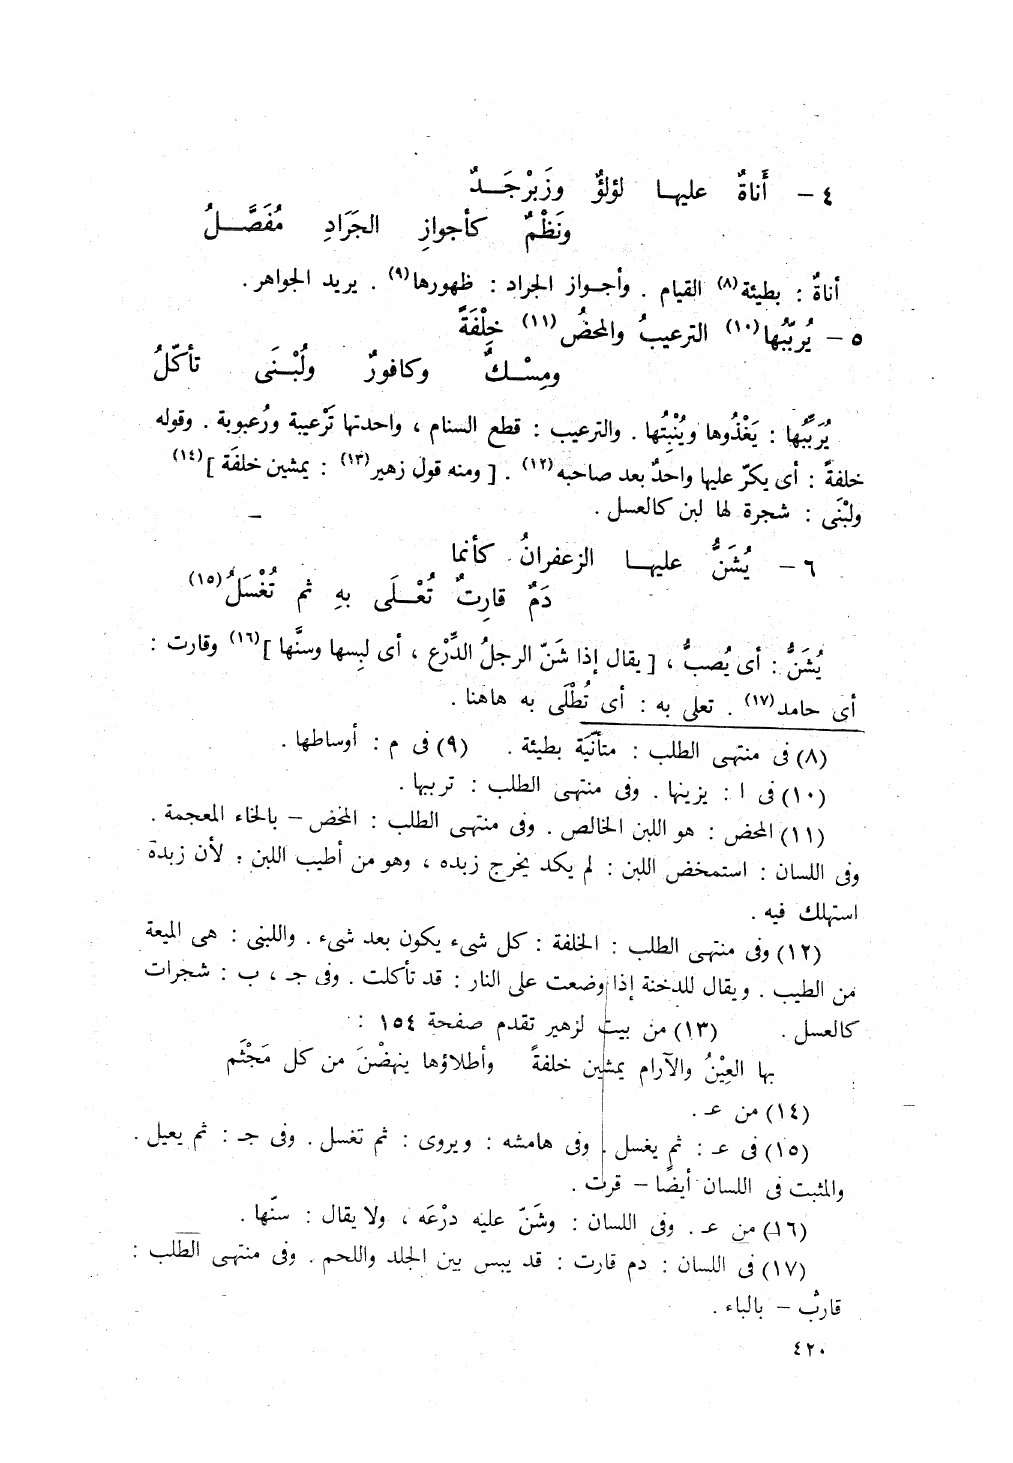 ٤ – أَناةٌ عليها لؤلؤٌ وزَبرْجَدٌ
ونَظْمٌ كأجوازِ الجَرَادِ مُفَصَّلُ
أناةٌ : بطيئة(٨) القيام . وأجواز الجراد : ظهورها(٩) . يريد الجواهر .
٥ – يُربّبُها(١٠) الترعيبُ والمحضُ(١١) خِلْفَةً
ومِسْكٌ وكافورٌ ولُبْنَى تأكّلُ
يُرَبّبُها : يَغْذُوها ويُنْبِتُها . والترعيب : قطع السنام ، واحدتها تَرْعيبة ورُعبوبة . وقوله
خلفةً : أى يكرّ عليها واحدٌ بعد صاحبه(١٢) . [ ومنه قول زهير(١٣) : يمشين خلفَة ](١٤)
ولبْنَى : شجرة لها لبن كالعسل .
٦ – يُشَنُّ عليها الزعفرانُ كأنما
دَمٌ قارِتٌ تُعْلَى بهِ ثم تُغْسَلُ(١٥)
يُشَنُّ : أى يُصبُّ ، [ يقال إذا شَنّ الرجلُ الدِّرْع ، أى لبِسها وسنَّها ](١٦) وقارت :
أى جامد(١٧) . تعلى به : أى تُطْلَى به هاهنا .
(٨) فى منتهى الطلب : متأنّية بطيئة . (٩) فى م : أوساطها .
(١٠) فى ا : يزينها . وفى منتهى الطلب : ترببها .
(١١) المحض : هو اللبن الخالص . وفى منتهى الطلب : المخض – بالخاء المعجمة .
وفى اللسان : استمخض اللبن : لم يكد يخرج زبده ، وهو من أطيب اللبن ؛ لأن زبدة
استهلك فيه .
(١٢) وفى منتهى الطلب : الخلفة : كل شىء يكون بعد شىء . واللبنى : هى الميعة
من الطيب . ويقال للدخنة إذا وضعت على النار : قد تأكلت . وفى جـ ، ب : شجرات
كالعسل . (١٣) من بيت لزهير تقدم صفحة ١٥٤ :
بها العِيْنُ والآرام يمشين خلفةً وأطلاؤها ينهضْنَ من كل مَجْثَم
(١٤) من عـ .
(١٥) فى عـ : ثم يغسل . وفى هامشه : ويروى : ثم تغسل . وفى جـ : ثم يعيل .
والمثبت فى اللسان أيضًا – قرت .
(١٦) من عـ . وفى اللسان : وشَنّ عليه درْعَه ، ولا يقال : سنّها .
(١٧) فى اللسان : دم قارت : قد يبس بين الجلد واللحم . وفى منتهى الطلب :
قاربٌ – بالباء .
٤٢٠